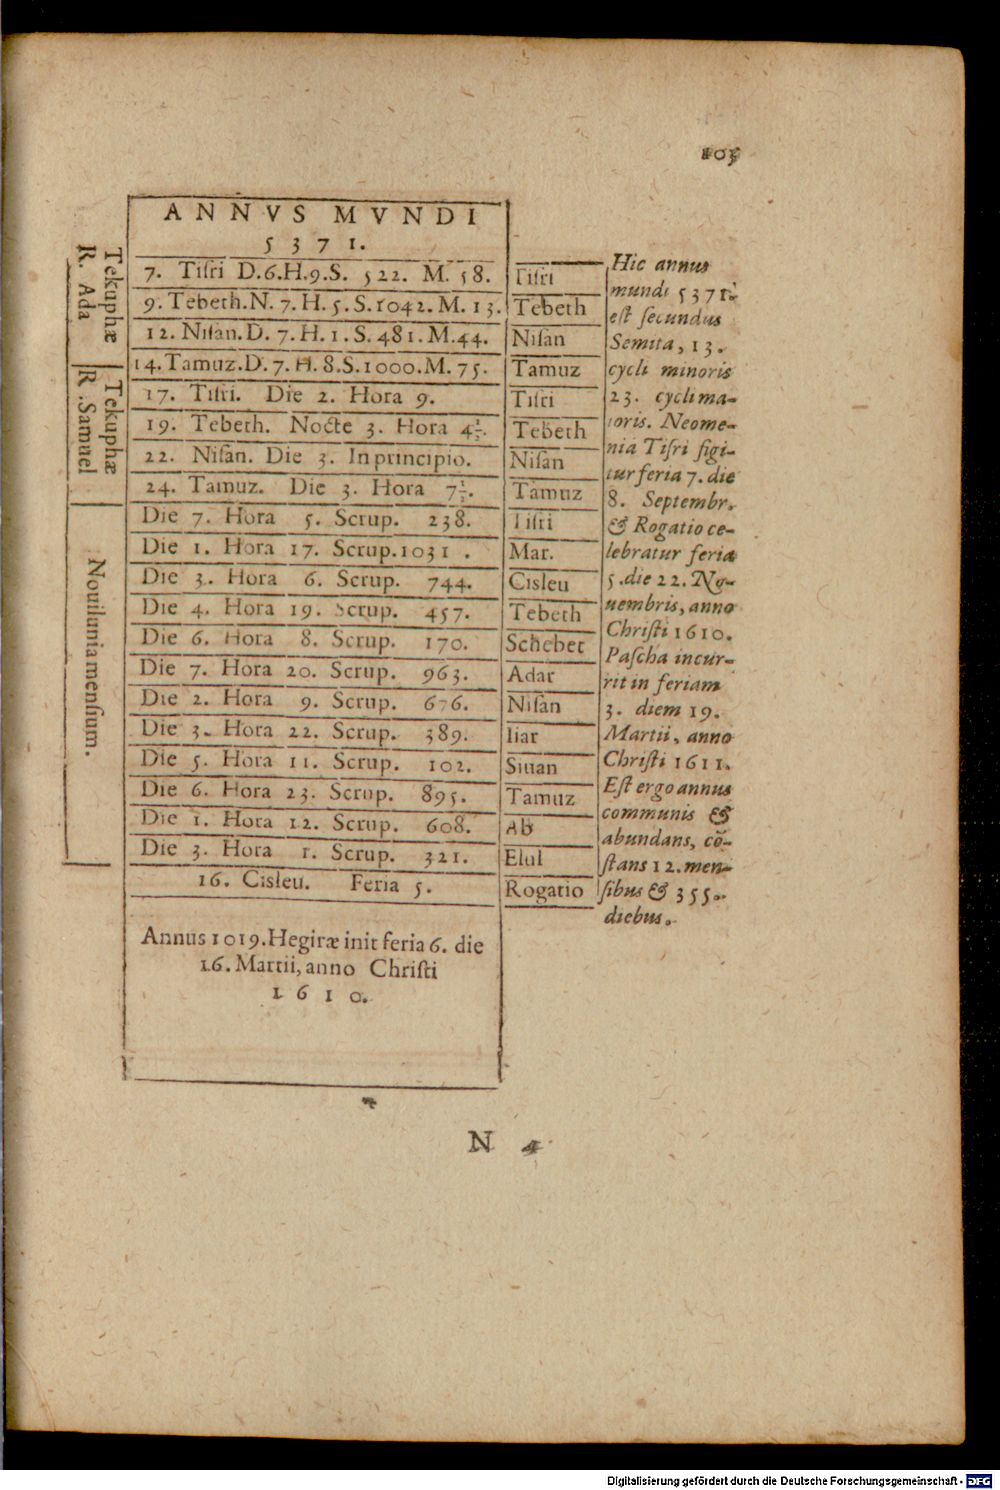 103
ANNVS MVNDI
5371.
Tekuphæ
R. Ada
7. Tiſri D.6.H.9.S. 522. M. 58. Tiſri
9. Tebeth.N. 7. H. 5. S.1042. M. 13. Tebeth
12. Niſan.D. 7. H. 1. S. 481. M.44. Niſan
14.Tamuz.D. 7. H. 8.S.1000.M. 75. Tamuz
Tekuphæ
R .Samuel
17. Tiſri. Die 2. Hora 9. Tiſri
19. Tebeth. Nocte 3. Hora 4½. Tebeth
22. Niſan. Die 3. In principio. Niſan
24. Tamuz. Die 3. Hora 7½. Tamuz
Nouilunia menſium.
Die 7. Hora 5. Scrup. 238. Tiſri
Die 1. Hora 17. Scrup.1031 . Mar.
Die 3. Hora 6. Scrup. 744. Cisleu
Die 4. Hora 19. Scrup. 457. Tebeth
Die 6. Hora 8. Scrup. 170. Schebet
Die 7. Hora 20. Scrup. 963. Adar
Die 2. Hora 9. Scrup. 676. Niſan
Die 3. Hora 22. Scrup. 389. Iiar
Die 5. Hora 11. Scrup. 102. Siuan
Die 6. Hora 23. Scrup. 895. Tamuz
Die 1. Hora 12. Scrup. 608. Ab
Die 3. Hora 1. Scrup. 321. Elul
16. Cisleu. Feria 5. Rogatio
Annus 1019.Hegiræ init feria 6. die
16. Martii, anno Chriſti
1610.
Hic annus
mundi 5371.
eſt ſecundus
Semita, 13.
cycli minoris
23. cycli ma-
ioris. Neome-
nia Tiſri figi-
tur feria 7. die
8. Septembr.
& Rogatio ce-
lebratur feria
5. die 22. No-
uembris, anno
Chriſti 1610.
Paſcha incur-
rit in feriam
3. diem 19.
Martii, anno
Chriſti 1611.
Eſt ergo annus
communis &
abundans, cõ-
ſtans 12. men-
ſibus & 355.
diebus.
N 4
Digitalisierung gefördert durch die Deutsche Forschungsgemeinschaft - DFG